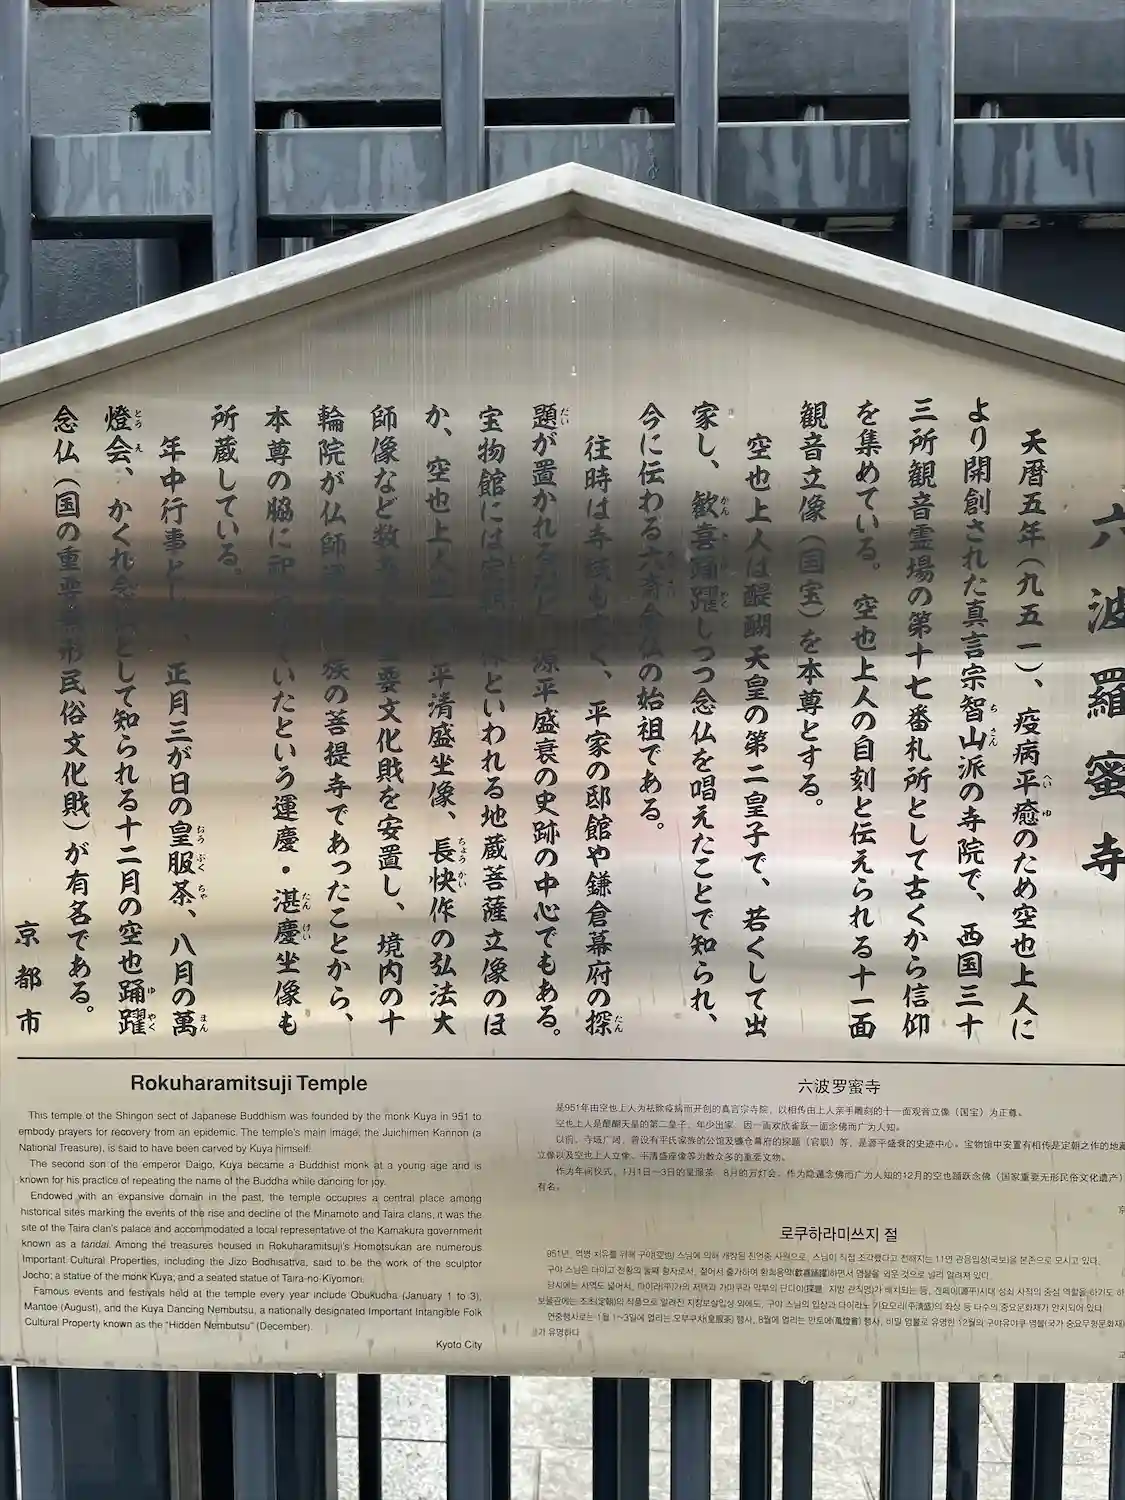 六波羅蜜寺
天暦五年（九五一）、疫病平癒のため空也上人に
より開創された真言宗智山派の寺院で、西国三十
三所観音霊場の第十七番札所として古くから信仰
を集めている。空也上人の自刻と伝えられる十一面
観音立像（国宝）を本尊とする。
空也上人は醍醐天皇の第二皇子で、若くして出
家し、歓喜踊躍しつつ念仏を唱えたことで知られ、
今に伝わる六斎念仏の始祖である。
往時は寺域も広く、平家の邸館や鎌倉幕府の探
題が置かれるなど、源平盛衰の史跡の中心でもある。
宝物館には定朝作といわれる地蔵菩薩立像のほ
か、空也上人立像、平清盛坐像、長快作の弘法大
師像など数多の重要文化財を安置し、境内の十
輪院が仏師運慶一族の菩提寺であったことから、
本尊の脇に祀っていたという運慶・湛慶坐像も
所蔵している。
年中行事として、正月三が日の皇服茶、八月の萬
燈会、かくれ念仏として知られる十二月の空也踊躍
念仏（国の重要無形民俗文化財）が有名である。
京都市
Rokuharamitsuji Temple
This temple of the Shingon sect of Japanese Buddhism was founded by the monk Kuya in 951 to
embody prayers for recovery from an epidemic. The temple's main image, the Juichimen Kannon (a
National Treasure), is said to have been carved by Kuya himself.
The second son of the emperor Daigo, Kuya became a Buddhist monk at a young age and is
known for his practice of repeating the name of the Buddha while dancing for joy.
Endowed with an expansive domain in the past, the temple occupies a central place among
historical sites marking the events of the rise and decline of the Minamoto and Taira clans, it was the
site of the Taira clan's palace and accommodated a local representative of the Kamakura government
known as a tandai. Among the treasures housed in Rokuharamitsuji's Homotsukan are numerous
Important Cultural Properties, including the Jizo Bodhisattva, said to be the work of the sculptor
Jocho; a statue of the monk Kuya; and a seated statue of Taira-no-Kiyomori.
Famous events and festivals held at the temple every year include Obukucha (January 1 to 3),
Mantoe (August), and the Kuya Dancing Nembutsu, a nationally designated Important Intangible Folk
Cultural Property known as the "Hidden Nembutsu" (December).
Kyoto City
六波罗蜜寺
是951年由空也上人为祛除疫病而开创的真言宗寺院，以相传由上人亲手雕刻的十一面观音立像（国宝）为正尊。
空也上人是醍醐天皇的第二皇子，年少出家，因一面欢欣雀跃一面念佛而广为人知。
以前，寺域广阔，曾设有平氏家族的公馆及镰仓幕府的探题（官职）等，是源平盛衰的史迹中心。宝物馆中安置有相传是定朝之作的地藏
立像以及空也上人立像、平清盛座像等为数众多的重要文物。
作为年间仪式，1月1日～3日的皇服茶、8月的万灯会、作为隐遁念佛而广为人知的12月的空也踊跃念佛（国家重要无形民俗文化遗产）
有名。
京
로쿠하라미쓰지 절
951년, 역병 치유를 위해 구야(空也) 스님에 의해 개창된 진언종 사원으로, 스님이 직접 조각했다고 전해지는 11면 관음입상(국보)을 본존으로 모시고 있다.
구야 스님은 다이고 천황의 둘째 황자로서, 젊어서 출가하여 환희용약(歓喜踊躍)하면서 염불을 외운 것으로 널리 알려져 있다.
당시에는 사역도 넓어서, 다이라(平)가의 저택과 가마쿠라 막부의 단다이(探題 지방 관직명)가 배치되는 등, 겐페이(源平)시대 성쇠 사적의 중심 역할을 하기도 하
보물관에는 조초(定朝)의 작품으로 알려진 지장보살입상 외에도, 구야 스님의 입상과 다이라노 기요모리(平清盛)의 좌상 등 다수의 중요문화재가 안치되어 있다.
연중행사로는 1월 1~3일에 열리는 오부쿠차(皇服茶) 행사, 8월에 열리는 만토에(萬燈會) 행사, 비밀 염불로 유명한 12월의 구야유야쿠 염불(국가 중요무형문화재)
가 유명하다.
교